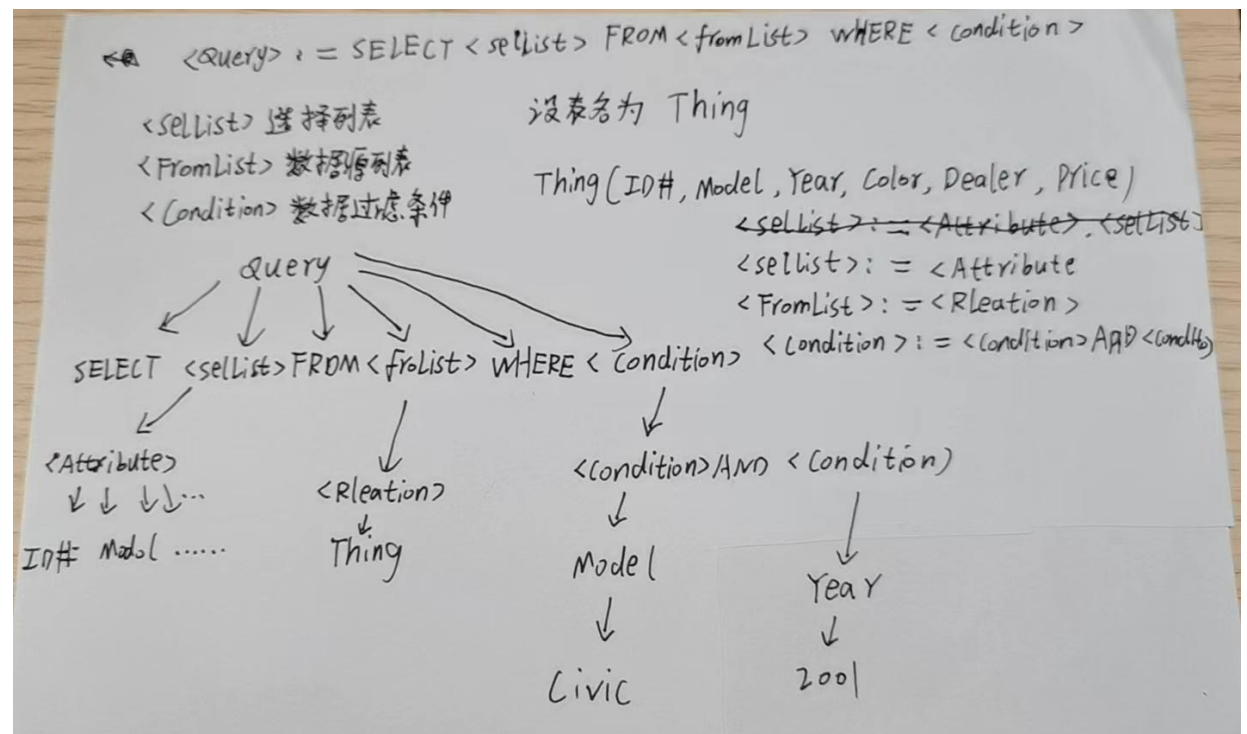 <Query> : = SELECT <selList> FROM <fromList> WHERE < Condition >
<SelList> 选择列表
<FromList> 数据源列表
<Condition> 数据过虑条件
设表名为 Thing
Thing(ID#, Model, Year, Color, Dealer, Price)
<selList> : = <Attribute>, <selList>
<sellist> : = <Attribute
<FromList> : = <Rleation>
<Condition> : = <Condition> AND <Condito>
Query
SELECT <selList> FROM <froList> WHERE < Condition>
<Attribute>
<Rleation>
<Condition> AND <Condition)
ID# Modol ......
Thing
Model
Year
Civic
2001